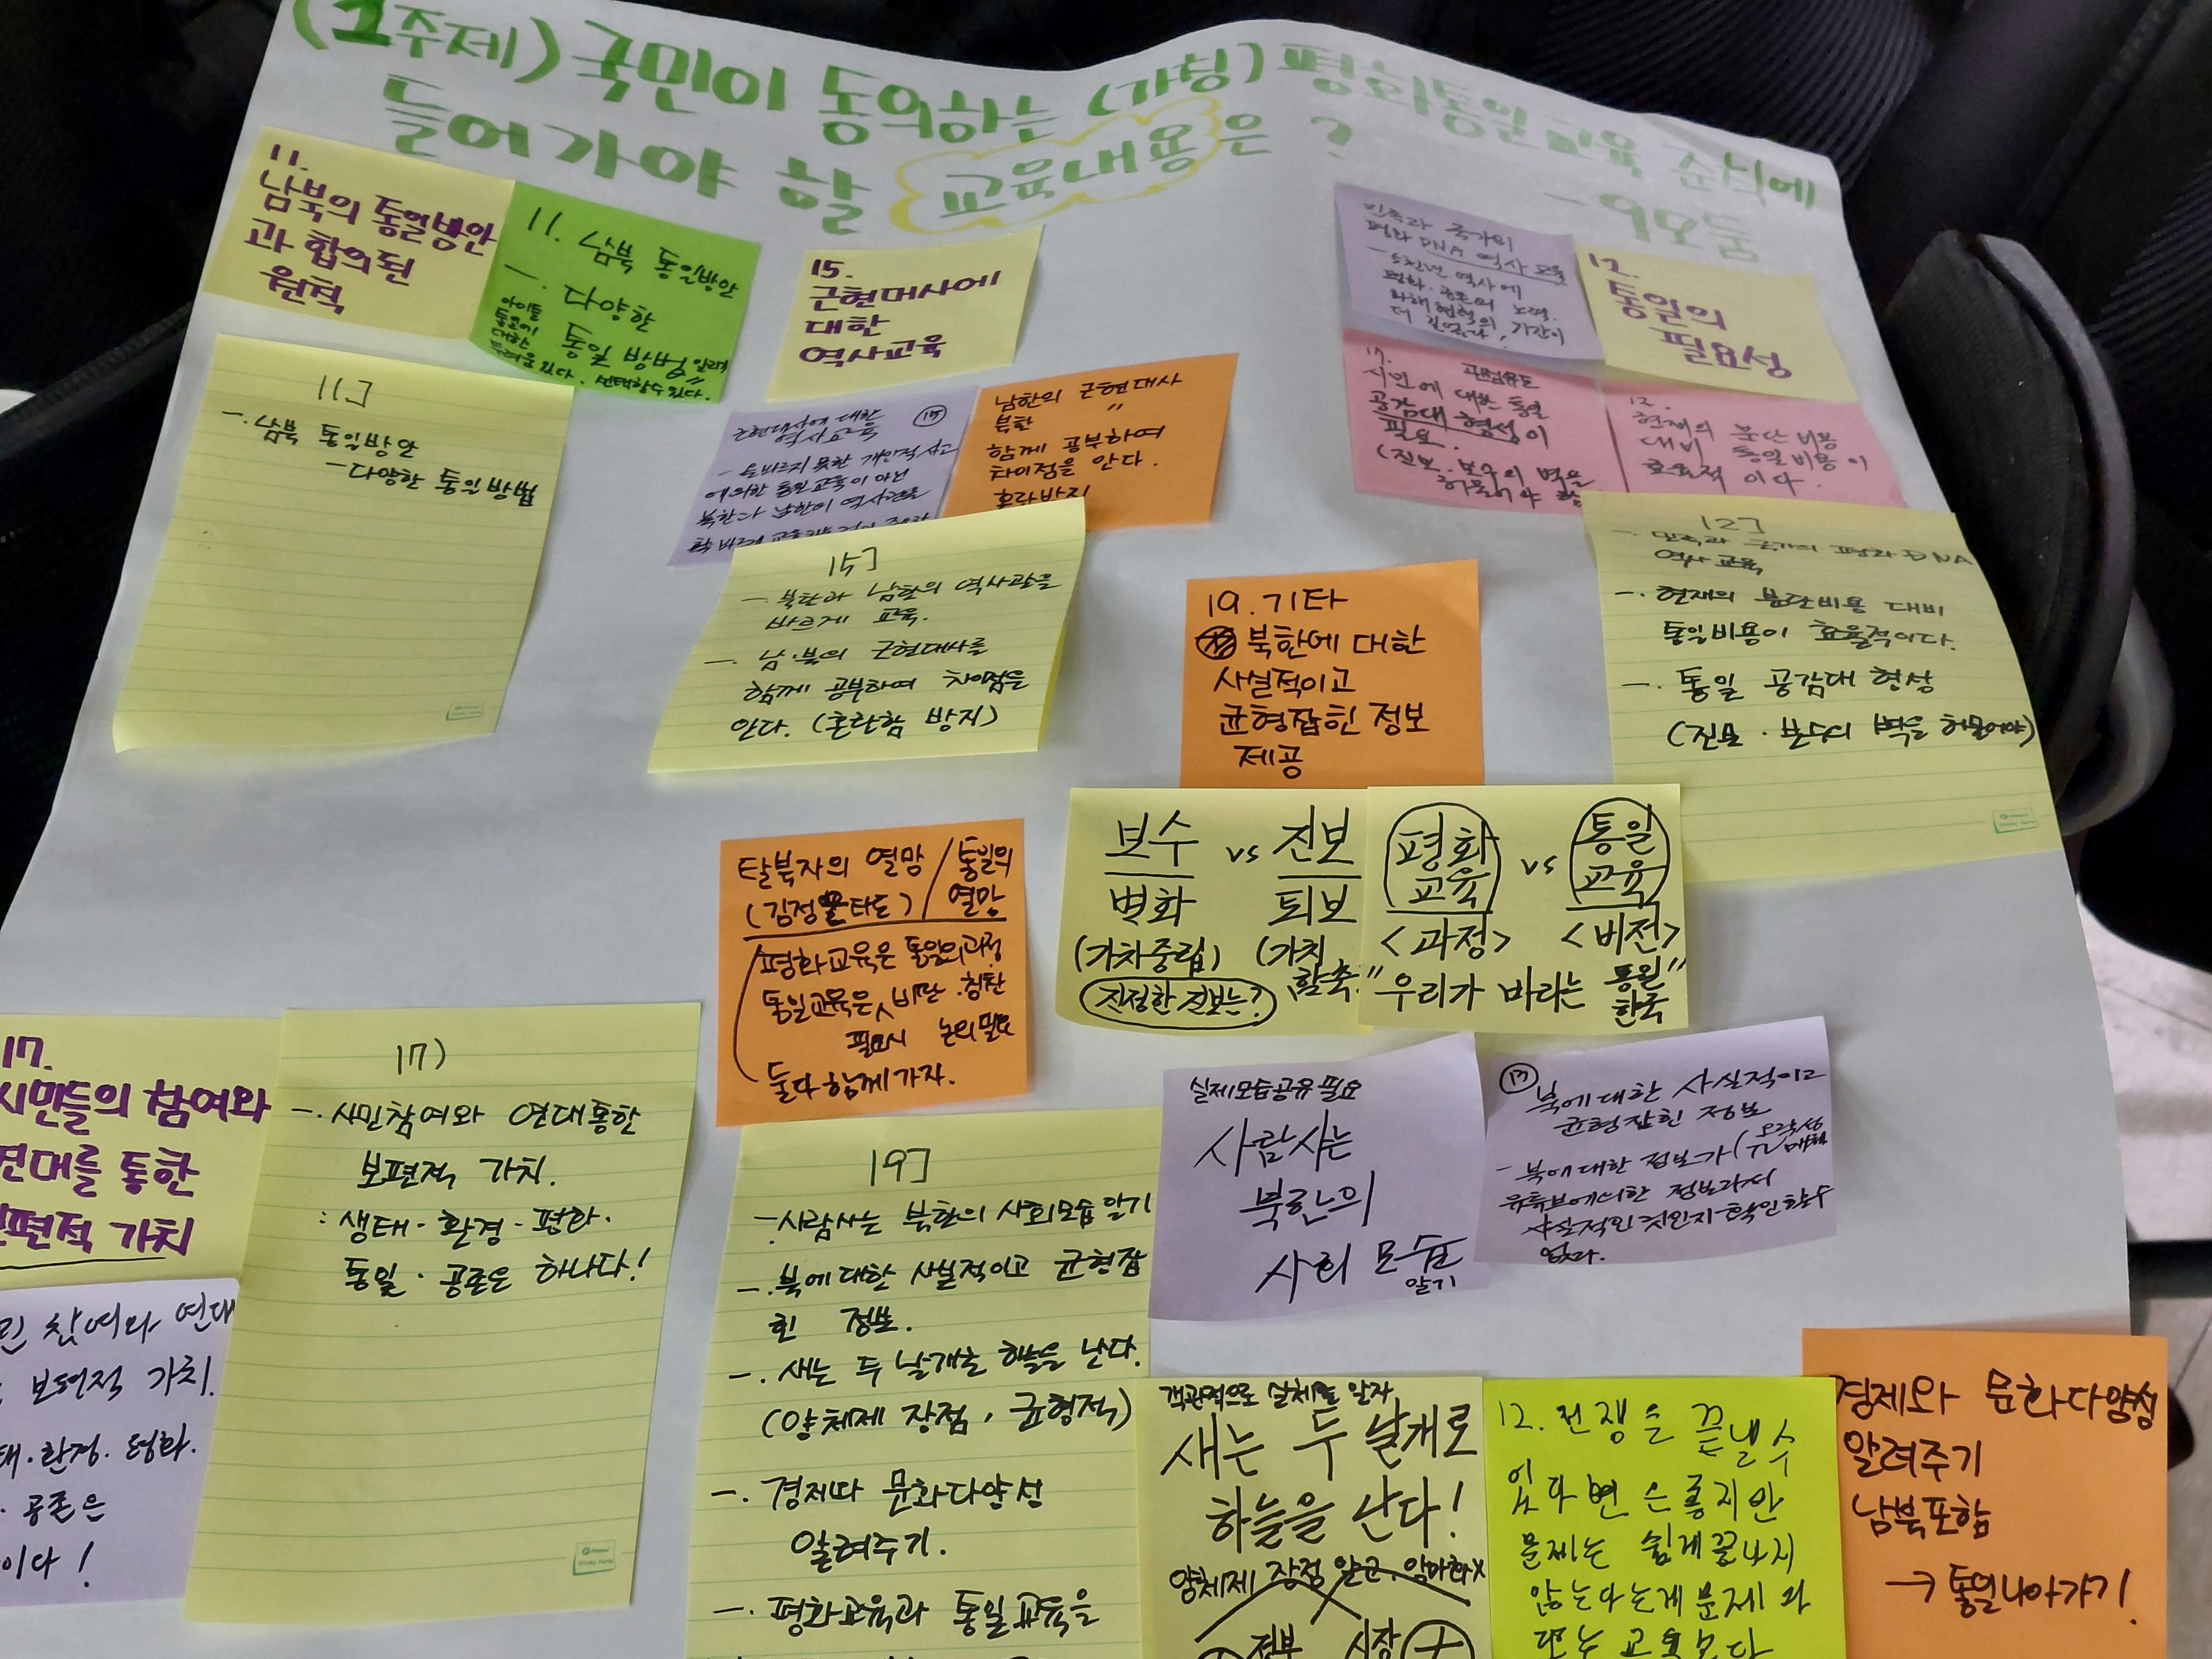 (1주제) 국민이 동의하는 (가칭) 평화통일교육 순식에
들어가야 할 교육내용은?
- 9모둠
11.
남북의 통일방안
과 합의된
원칙
11. 남북 통일방안
- 다양한
통일 방법 알려줘
선택할수있다.
11]
-. 남북 통일방안
- 다양한 통일방법
15.
근현대사에
대한
역사교육
근현대사에 대한 ⑮
역사교육
- 올바르지 못한 개인적 사고
에 의한 통일교육이 아닌
북한과 남한이 역사관을
남한의 근현대사
북한 〃
함께 공부하여
차이점을 안다.
혼란방지
15]
-. 북한과 남한의 역사관을
바르게 교육.
-. 남·북의 근현대사를
함께 공부하여 차이점을
안다. (혼란함 방지)
민족과 국가의
평화 DNA 역사 교육
- 5천년 역사에
평화·공존의 노력.
화해협력의 기간이
더 길었다!
12.
통일의
필요성
17. 관점유도
시민에 대한 통일
공감대 형성이
필요.
(진보·보수의 벽을
허물어야 함
12.
현재의 분단비용
대비 통일비용이
효율적이다.
12]
-. 민족과 국가의 평화 DNA
역사교육
-. 현재의 분단비용 대비
통일비용이 효율적이다.
-. 통일 공감대 형성
(진보·보수의 벽을 허물어야)
19. 기타
북한에 대한
사실적이고
균형잡힌 정보
제공
보수 vs 진보
변화 퇴보
(가치중립) (가치
함축)
진정한 진보는?
평화 vs 통일
교육 교육
<과정> <비전>
"우리가 바라는 통일"
한국
탈북자의 열망 / 통일의
(김정은타도) / 열망
평화교육은 통일의 과정
통일교육은 비판·칭찬
필요시 논의필요
둘다 함께가자.
17.
시민들의 참여와
연대를 통한
보편적 가치
17)
-. 시민참여와 연대통한
보편적 가치.
: 생태·환경·평화·
통일·공존은 하나다!
민 참여와 연대
보편적 가치.
태·환경·평화.
· 공존은
이다!
19]
-. 사람사는 북한의 사회모습 알기
-. 북에 대한 사실적이고 균형잡
힌 정보.
-. 새는 두 날개로 하늘을 난다.
(양체제 장점, 균형적)
-. 경제와 문화다양성
알려주기.
-. 평화교육과 통일교육을
실제모습공유 필요
사람사는
북한의
사회 모습
알기
⑰ 북에 대한 사실적이고
균형잡힌 정보
- 북에 대한 정보가
유튜브에 의한 정보라서
사실적인 것인지 확인할수
없다.
객관적으로 실체를 알자
새는 두 날개로
하늘을 난다!
양체제 장점
정부 시장 +
12. 전쟁은 끝낼수
있다면 은 좋지만
문제는 쉽게 끝나지
않는다는게 문제 과
경제와 문화다양성
알려주기
남북포함
→ 통일나아가기!